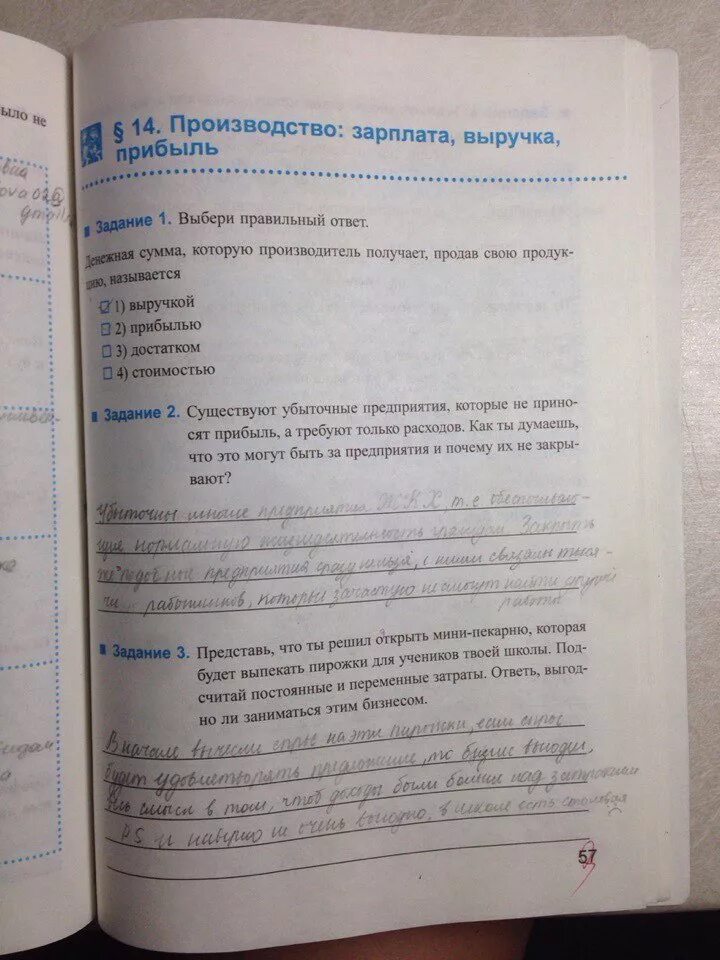 ыло не
§ 14. Производство: зарплата, выручка,
прибыль
Задание 1. Выбери правильный ответ.
Денежная сумма, которую производитель получает, продав свою продук-
цию, называется
1) выручкой
2) прибылью
3) достатком
4) стоимостью
Задание 2. Существуют убыточные предприятия, которые не прино-
сят прибыль, а требуют только расходов. Как ты думаешь,
что это могут быть за предприятия и почему их не закры-
вают?
Убыточны многие предприятия ЖКХ, т.е обеспечиваю-
щие нормальную жизнедеятельность граждан. Закрыть
же подобные предприятия сразу нельзя, с ними связаны тыся-
чи работников, которые зачастую не смогут найти другой
работы
Задание 3. Представь, что ты решил открыть мини-пекарню, которая
будет выпекать пирожки для учеников твоей школы. Под-
считай постоянные и переменные затраты. Ответь, выгод-
но ли заниматься этим бизнесом.
В начале вычесли спрос на эти пирожки, если спрос
будет удовлетворять предложение, то бизнес выгоден,
смысл в том, чтоб доходы были больше над затратами
P.S и наверно не очень выгодно, в школе есть столовая
57